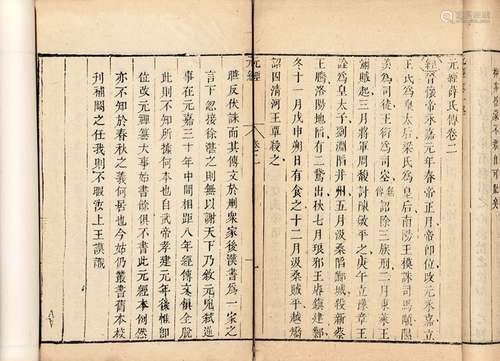 元經薛氏傳卷二
經晉懷帝永嘉元年春帝正月帝即位改元永嘉立
王氏爲皇太后梁氏爲皇后南陽王模誅司馬顒
爲司徒王衍爲司空詔除三族刑二月東萊王
彌賊起三月將軍周馥討陳敏平之庚午立豫章王
詮爲皇太子劉淵陷并州五月汲桑陷鄴城殺新蔡
王騰洛陽地陷有二鵞出秋七月琅邪王睿鎮建鄴
冬十一月戊申朔日有食之十二月汲桑賊平越矯
詔囚清河王覃殺之
元經
卷二
反伏誅而其傳文於刪衆家後漢書爲一家之
言下忽接徐湛之則無以謝天下乃敘元凶弒逆
事在元嘉三十年中間相距八年經傳文俱全脫
此則不知所據何本也自武帝孝建元年後惟卽
位改元禪篡大事始書餘俱不書此元經本例然
亦不知於春秋之義何居也今姑仍叢書舊本校
刊補闕之任我則不暇汝上王謨識